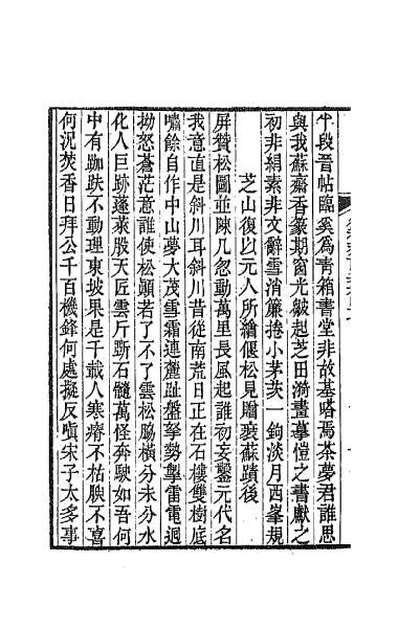 十段晉帖臨奚爲靑箱書堂非故基嗒焉茶夢君誰思
與我蘇齋香篆期窗光皺起芝田漪畫摹愷之書獻之
初非絹素非文辭雪消簾捲小茅茨一鉤淡月西峯規
芝山復以元人所繪偃松見贈裝蘇蹟後
屏贊松圖並陳几忽動萬里長風起誰初妄鑿元代名
我意直是斜川耳斜川昔從南荒日正在石樓雙樹底
嘯餘自作中山夢大茂雪霜連麓趾盤拏勢掣雷電迴
拗怒蒼茫意誰使松顚若了不了雲松腦橫分未分水
化人巨跡蓬萊股天匠雲斤斲石髓萬怪奔馳如吾何
中有跏趺不動理東坡果是千載人寒瘠不枯腴不喜
何況焚香日拜公千百機鋒何處擬反嗔宋子太多事